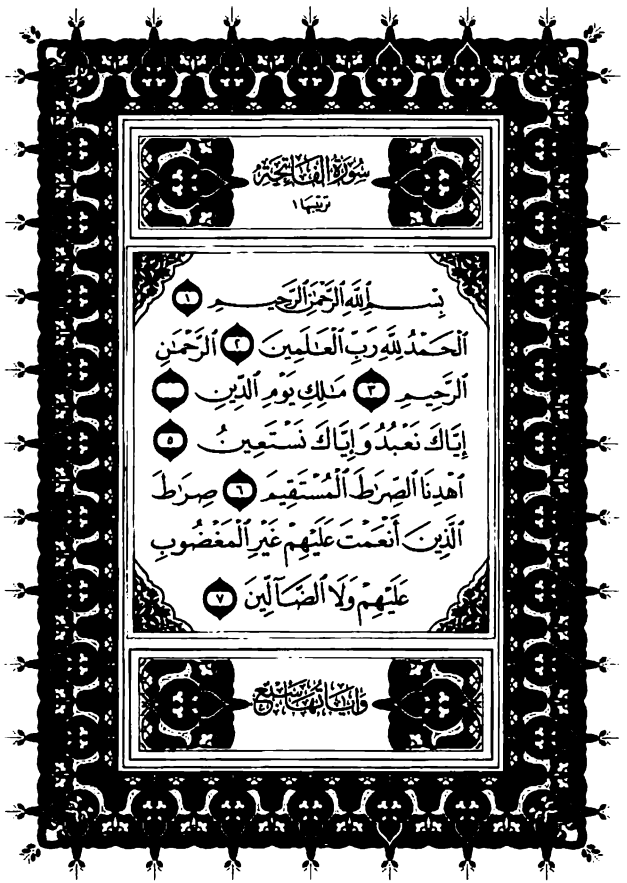 سُورَةُ الفَاتِحَةِ
ترتيبها ١
بِسْمِ ٱللَّهِ ٱلرَّحْمَٰنِ ٱلرَّحِيمِ ١
ٱلْحَمْدُ لِلَّهِ رَبِّ ٱلْعَٰلَمِينَ ٢ ٱلرَّحْمَٰنِ
ٱلرَّحِيمِ ٣ مَٰلِكِ يَوْمِ ٱلدِّينِ
إِيَّاكَ نَعْبُدُ وَإِيَّاكَ نَسْتَعِينُ ٥
ٱهْدِنَا ٱلصِّرَٰطَ ٱلْمُسْتَقِيمَ ٦ صِرَٰطَ
ٱلَّذِينَ أَنْعَمْتَ عَلَيْهِمْ غَيْرِ ٱلْمَغْضُوبِ
عَلَيْهِمْ وَلَا ٱلضَّآلِّينَ ٧
وَآيَاتُهَا سَبْعٌ